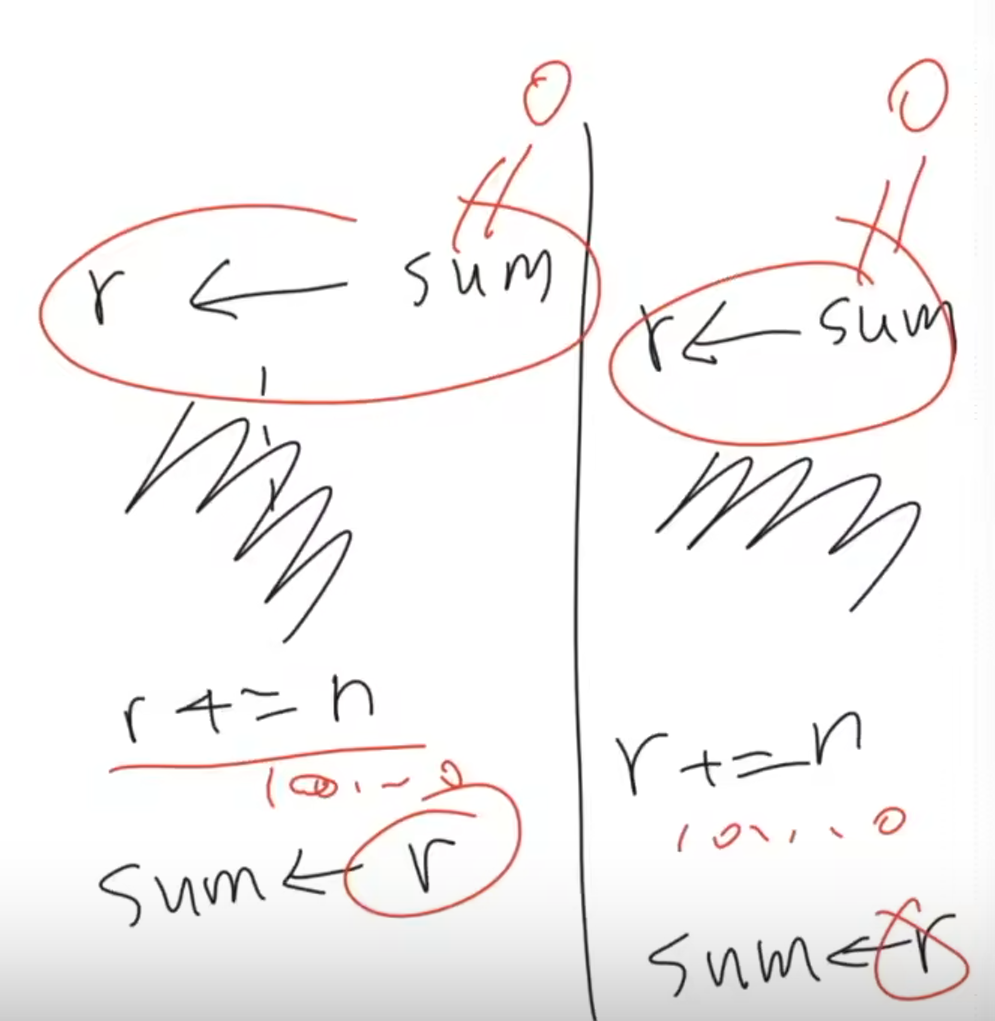 0
r ← sum
r += n
100...0
sum ← r
0
r ← sum
r += n
10...0
sum ← r